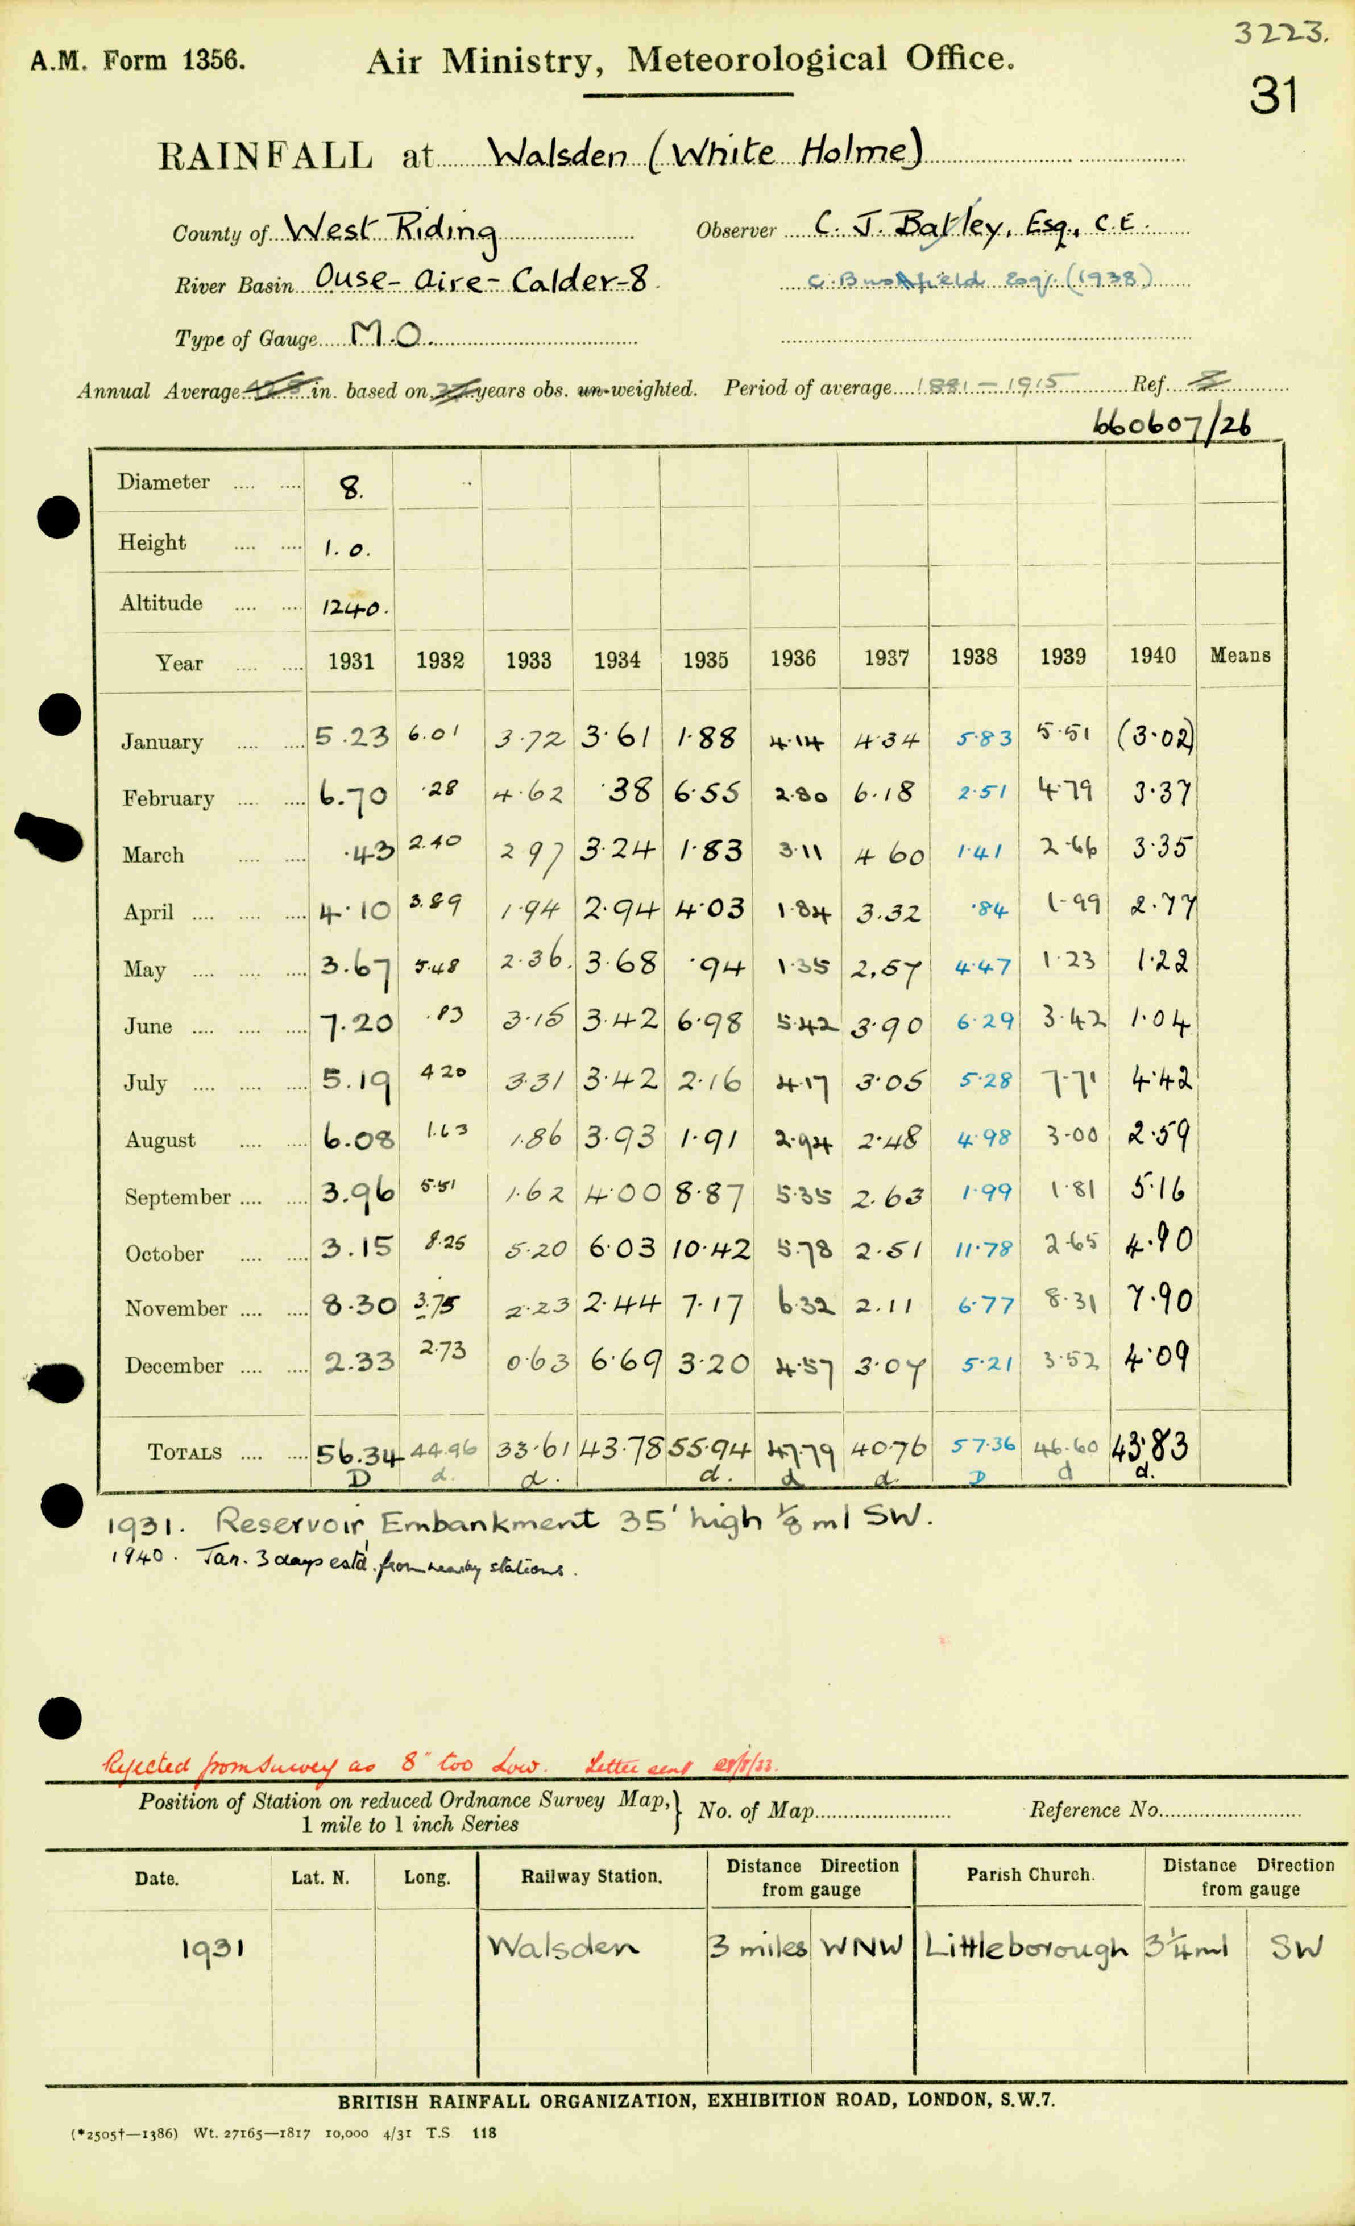 3223.
A.M. Form 1356. Air Ministry, Meteorological Office.
31
RAINFALL at Walsden (White Holme)
County of West Riding Observer C. J. Batley, Esq., C.E.
River Basin Ouse-Aire-Calder-8. (1938)
Type of Gauge M.O.
Annual Average in. based on years obs. un-weighted. Period of average 1881-1915 Ref.
660607/26
Diameter .... .... 8.
Height .... .... 1.0.
Altitude .... .... 1240.
Year .... .... 1931 1932 1933 1934 1935 1936 1937 1938 1939 1940 Means
January .... .... 5.23 6.01 3.72 3.61 1.88 4.14 4.34 5.83 5.51 (3.02)
February .... .... 6.70 .28 4.62 .38 6.55 2.80 6.18 2.51 4.79 3.37
March .... .... .43 2.40 2.97 3.24 1.83 3.11 4.60 1.41 2.66 3.35
April .... .... .... 4.10 3.89 1.94 2.94 4.03 1.84 3.32 .84 1.99 2.77
May .... .... .... 3.67 5.48 2.36. 3.68 .94 1.35 2.57 4.47 1.23 1.22
June .... .... .... 7.20 .83 3.15 3.42 6.98 5.42 3.90 6.29 3.42 1.04
July .... .... .... 5.19 4.20 3.31 3.42 2.16 4.17 3.05 5.28 7.71 4.42
August .... .... 6.08 1.63 1.86 3.93 1.91 2.94 2.48 4.98 3.00 2.59
September .... .... 3.96 5.51 1.62 4.00 8.87 5.35 2.63 1.99 1.81 5.16
October .... .... 3.15 8.25 5.20 6.03 10.42 5.78 2.51 11.78 2.65 4.90
November .... .... 8.30 3.75 2.23 2.44 7.17 6.32 2.11 6.77 8.31 7.90
December .... .... 2.33 2.73 0.63 6.69 3.20 4.57 3.07 5.21 3.52 4.09
TOTALS .... .... 56.34 44.96 33.61 43.78 55.94 47.79 40.76 57.36 46.60 43.83
D d. d. d. d d. D d d.
1931. Reservoir Embankment 35' high 1/8 ml SW.
1940. Jan. 3 days estd. from nearby stations.
Rejected from Survey as 8" too Low. Letter sent
Position of Station on reduced Ordnance Survey Map,} No. of Map Reference No.
1 mile to 1 inch Series
Date. Lat. N. Long. Railway Station. Distance Direction from gauge Parish Church. Distance Direction from gauge
1931 Walsden 3 miles WNW Littleborough 3 1/4 ml SW
BRITISH RAINFALL ORGANIZATION, EXHIBITION ROAD, LONDON, S.W.7.
(*2505†—1386) Wt. 27165—1817 10,000 4/31 T.S 118